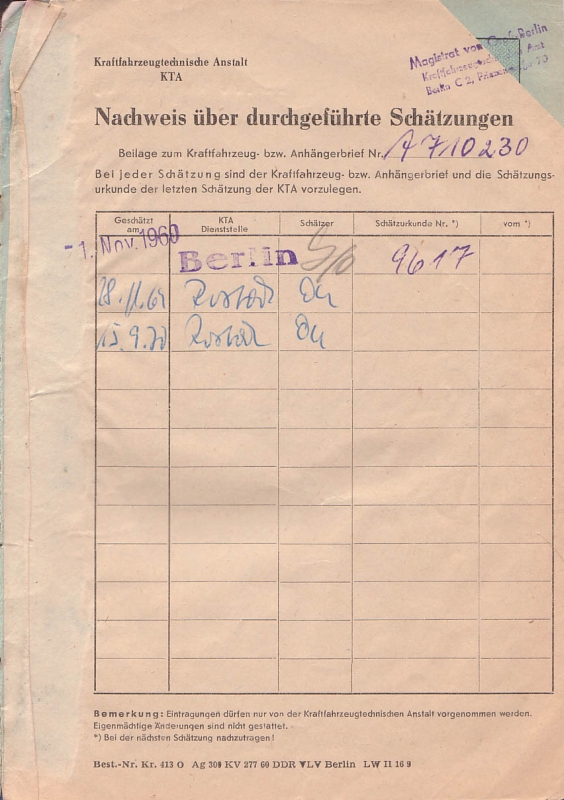 Kraftfahrzeugtechnische Anstalt
KTA
Magistrat von Groß-Berlin
Berlin C 2,
Nachweis über durchgeführte Schätzungen
Beilage zum Kraftfahrzeug- bzw. Anhängerbrief Nr. A 710230
Bei jeder Schätzung sind der Kraftfahrzeug- bzw. Anhängerbrief und die Schätzungs-
urkunde der letzten Schätzung der KTA vorzulegen.
Geschätzt am KTA Dienststelle Schätzer Schätzurkunde Nr. *) vom *)
-1. Nov. 1960 Berlin 9617
28.11.69 Rostock
15.9.70 Rostock
Bemerkung: Eintragungen dürfen nur von der Kraftfahrzeugtechnischen Anstalt vorgenommen werden.
Eigenmächtige Änderungen sind nicht gestattet.
*) Bei der nächsten Schätzung nachzutragen!
Best.-Nr. Kr. 413 O Ag 309 KV 277 60 DDR VLV Berlin LW II 16 9